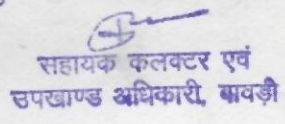 सहायक कलक्टर एवं
उपखण्ड अधिकारी, बावड़ी